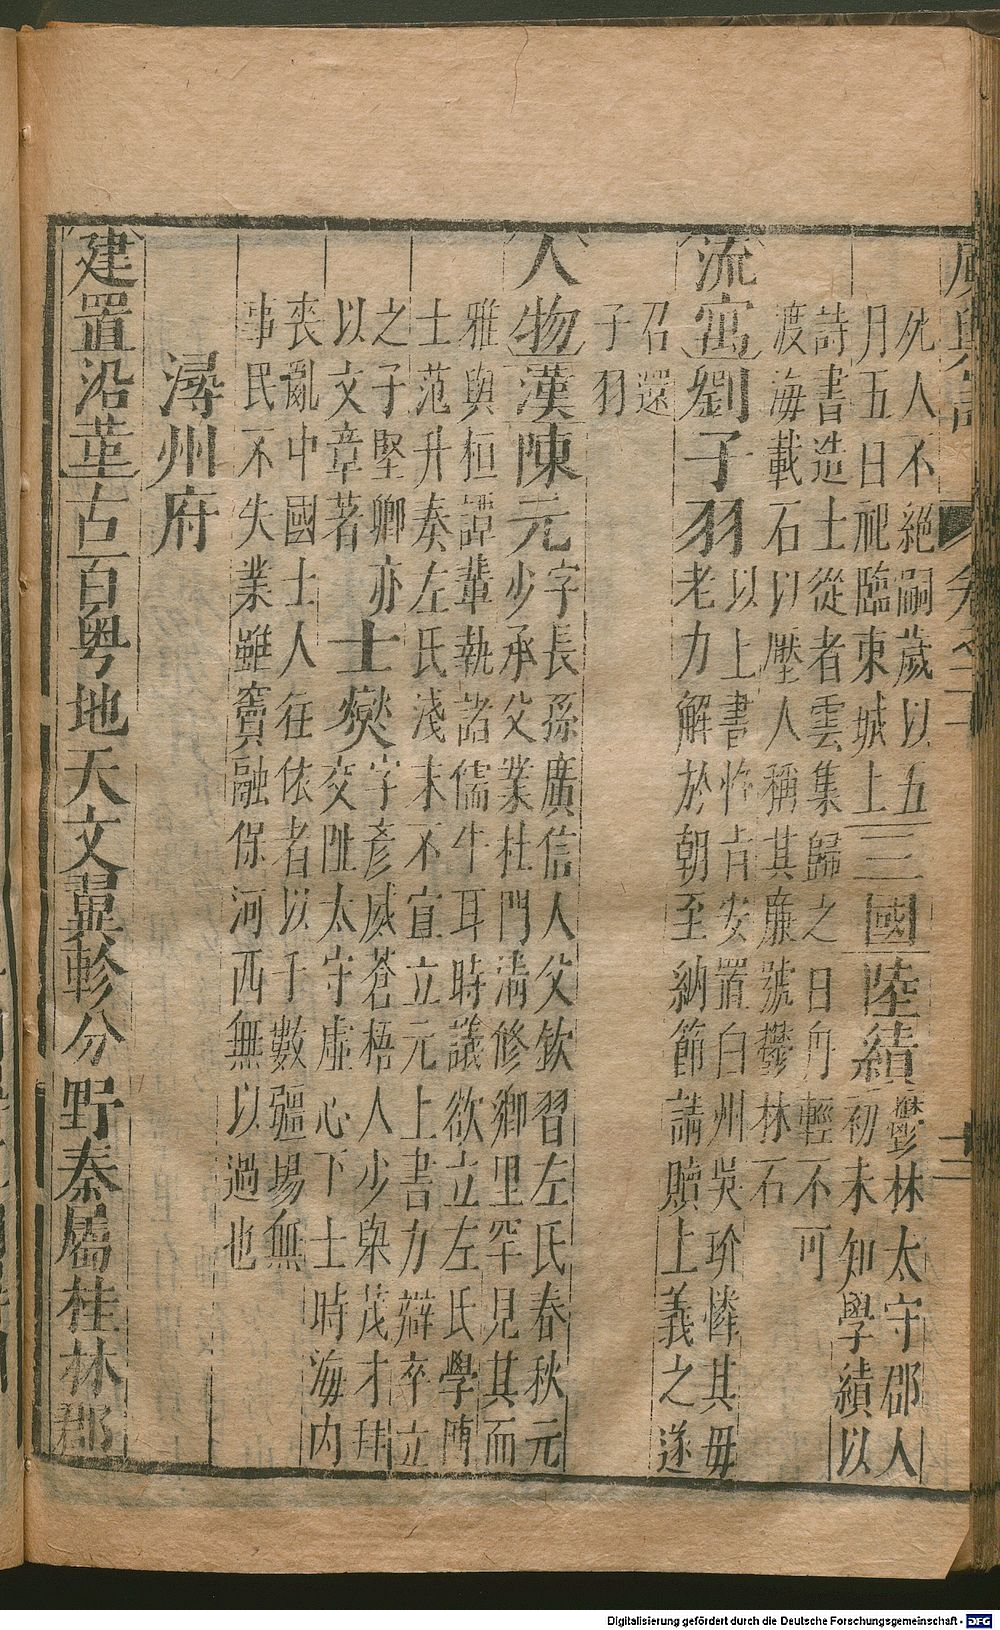 死人不絕嗣歲以五
月五日祀臨東城上
三國陸績
鬱林太守郡人
初未知學績以
詩書造士從者雲集歸之日舟輕不可
渡海載石以壓人稱其廉號鬱林石
流寓劉子羽
以上書忤㫖安置白州吳玠憐其毋
老力解於朝至納節請贖上義之遂
召還
子羽
人物漢陳元
字長孫廣信人父欽習左氏春秋元
少承父業杜門清修鄉里罕見其面
雅與桓譚輩執諸儒牛耳時議欲立左氏學博
士范升奏左氏淺末不宜立元上書力辯卒立
之子堅卿亦
以文章著
士燮
字彥威蒼梧人少舉茂才拜
交阯太守虛心下士時海内
喪亂中國士人往依者以千數疆場無
事民不失業雖竇融保河西無以過也
潯州府
建置沿革古百粤地天文翼軫分野秦屬桂林郡
Digitalisierung gefördert durch die Deutsche Forschungsgemeinschaft - DFG